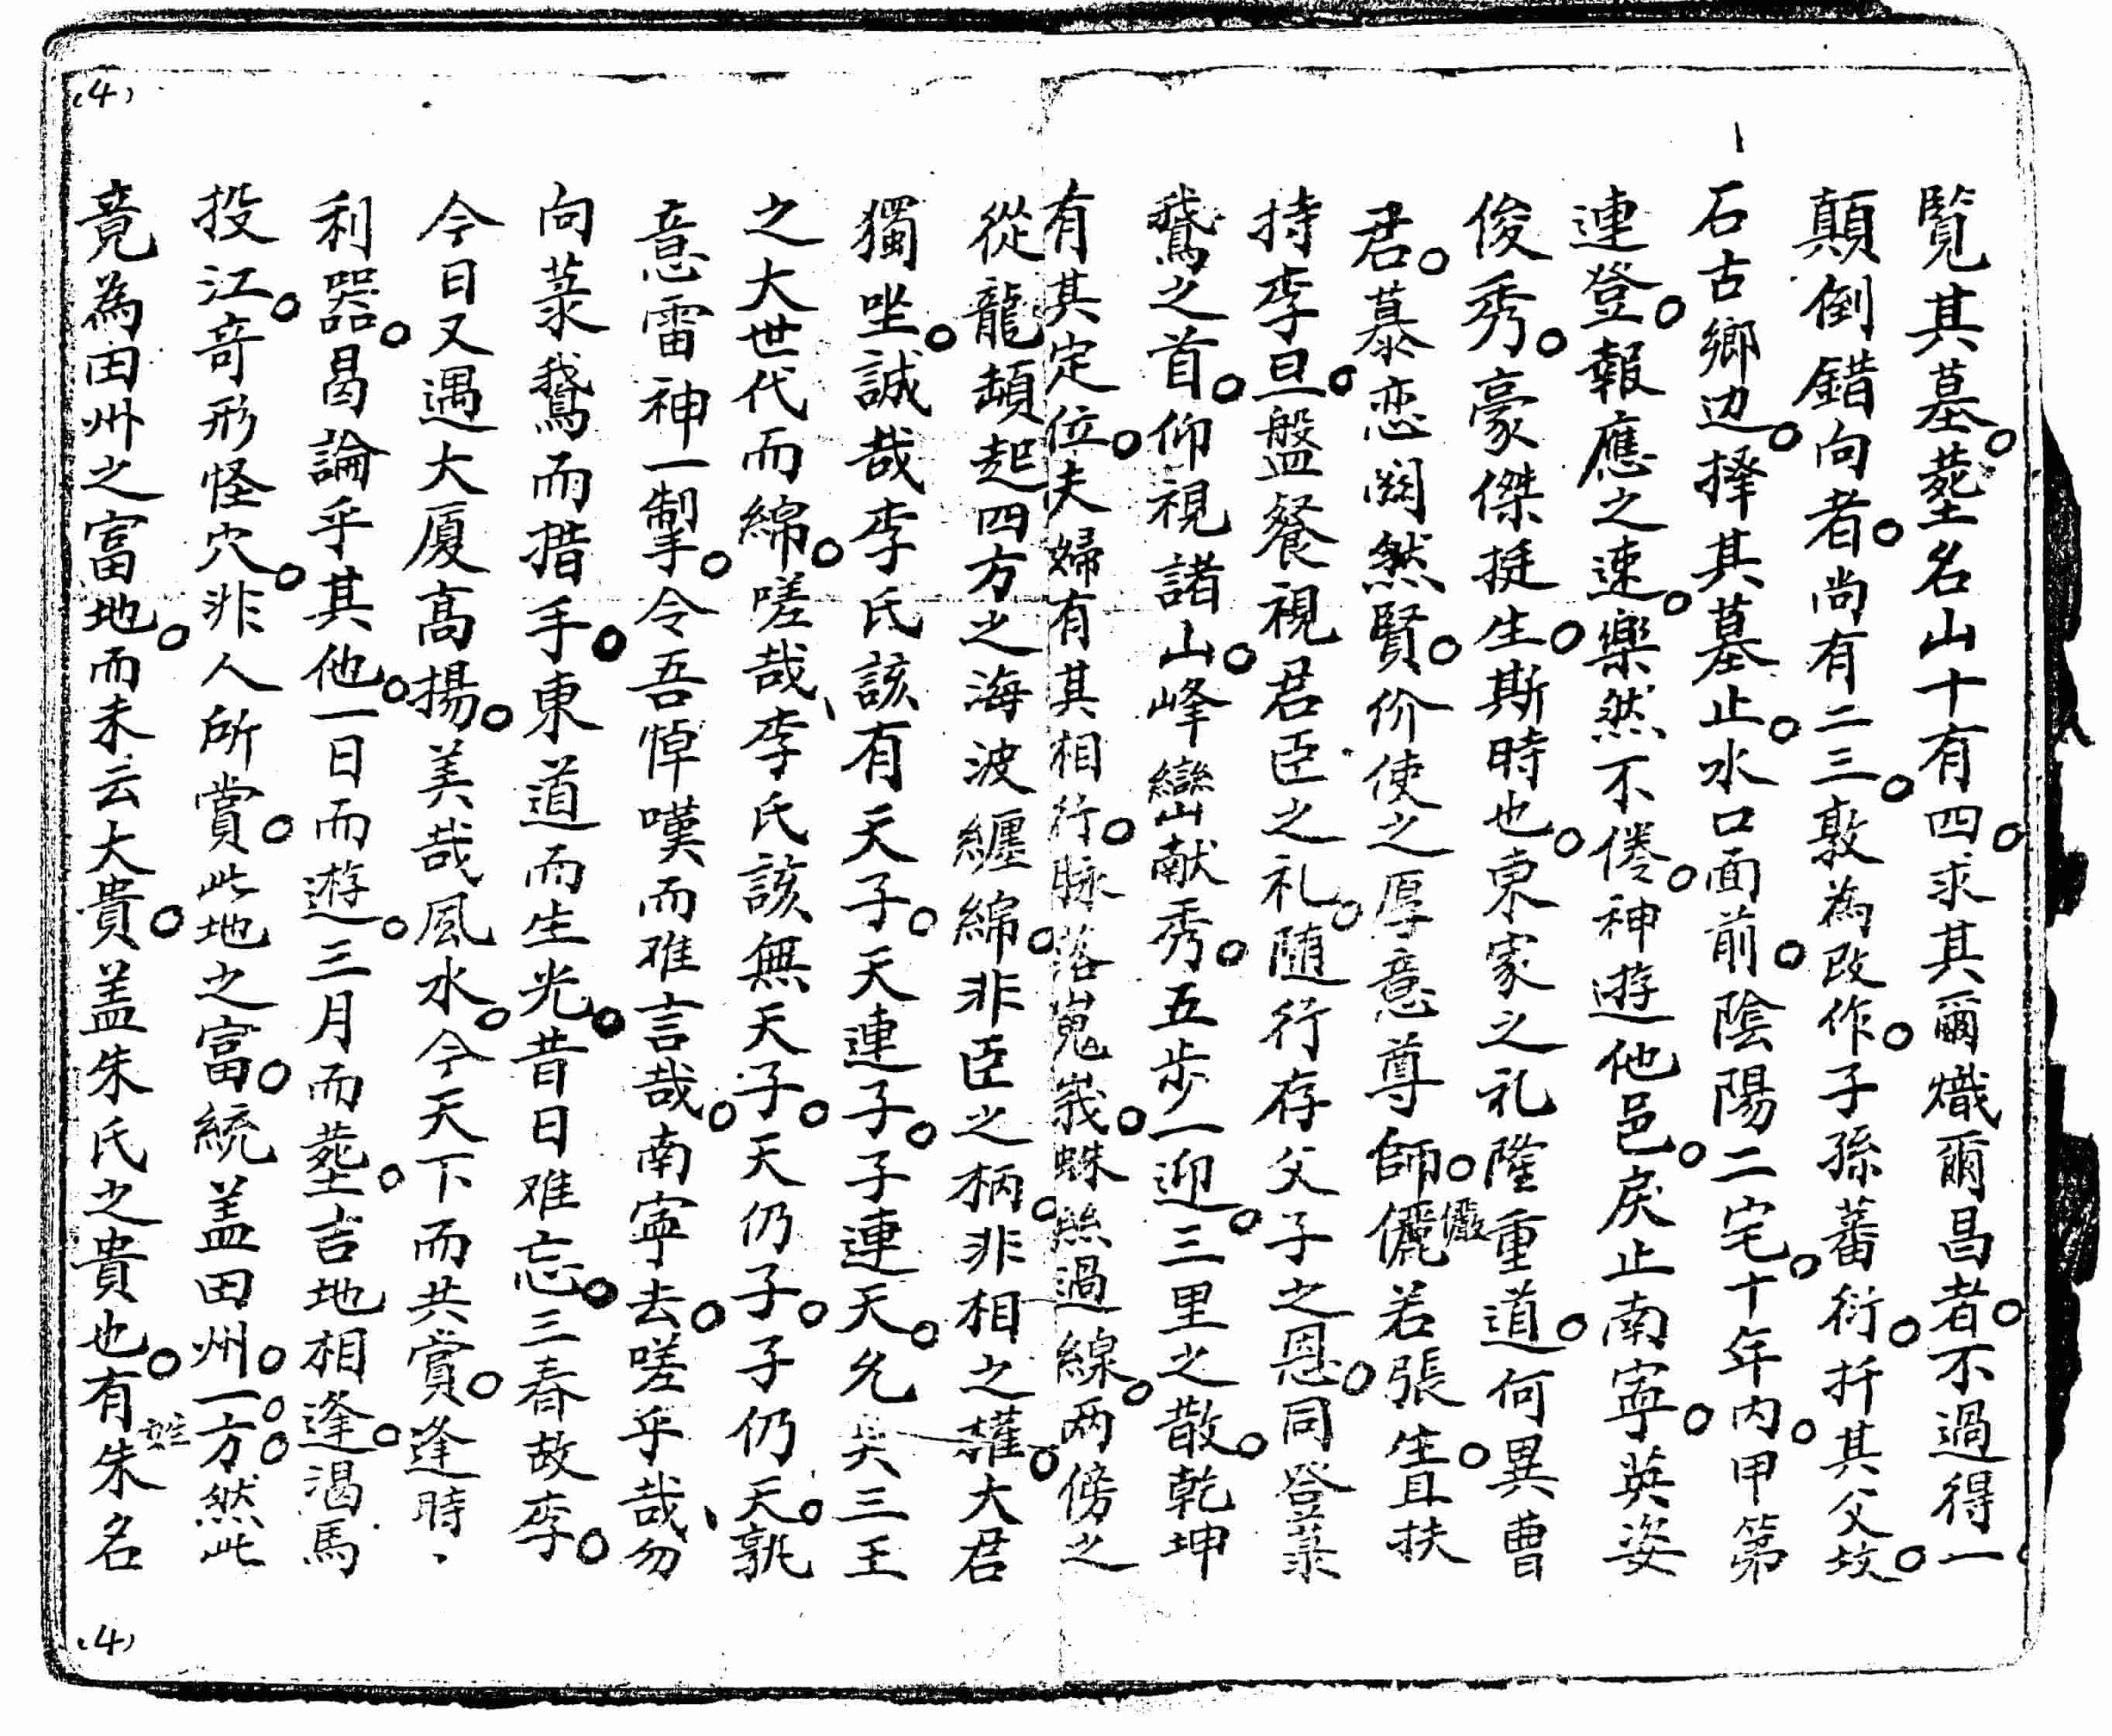 (4)
覧其墓。塟名山十有四。求其爾熾爾昌者。不過得一。
顛倒錯向者。尚有二三。敦為改作。子孫蕃衍。扦其父坟。
石古鄉边。择其墓止。水口面前。陰陽二宅。十年内。甲第
連登。報應之速。樂然不倦。神遊他邑。戻止南寧。英姿
俊秀。豪傑挺生。斯時也。東家之礼隆重道。何異曹
君。慕恋闊然賢。价使之厚意尊師。儷儼若張生。且扶
持李旦。盤餐視君臣之礼。随行存父子之恩。同登菉
鵞之首。仰視諸山。峰巒献秀。五步一迎。三里之散。乾坤
有其定位。夫婦有其相行。脉落嵬峩。蛛絲過線。两傍之
從龍頳起四方之海波纒綿。非臣之柄。非相之權。大君
獨坐。誠哉李氏該有天子。天連子。子連天。允矣三王
之大世代而綿。嗟哉、李氏該無天子。天仍子。子仍天。孰
意雷神一掣。令吾悼嘆而难言哉。南寧去。嗟乎哉、勿
向菉鵞而措手。東道而生光。昔日难忘。三春故李。
今日又遇大厦高揚。美哉風水。今天下而共賞。逢時、
利器。曷論乎其他。一日而遊。三月而塟。吉地相逢。渴馬
投江。奇形怪穴。非人所賞。此地之富。統盖田州。一方。然此
竟為田州之富地。而未云大貴。盖朱氏之貴也。有朱姓名
(4)